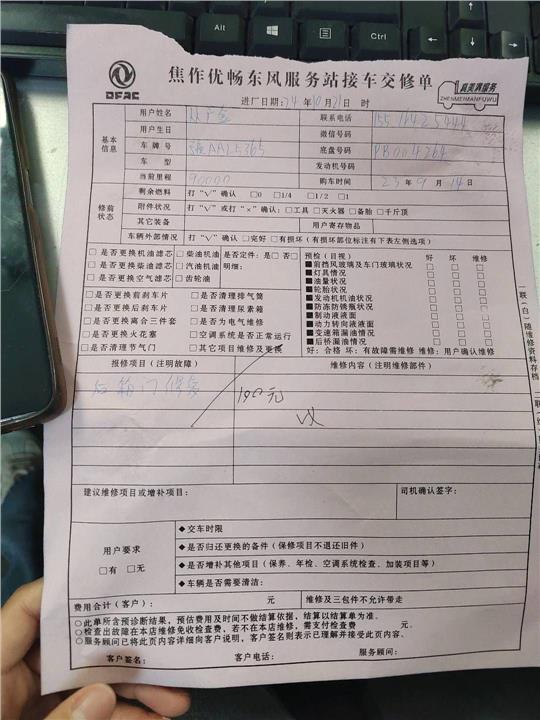 DFAC
焦作优畅东风服务站接车交修单
真美满服务
ZHENMEIMANFUWU
进厂日期:24年10月21日 时
基本信息
用户姓名
联系电话
用户生日
微信号码
车牌号
底盘号码 PB004264
车型
发动机号码
当前里程 90000
购车时间 23年9月14日
修前状态
剩余燃料 打“√”确认 □0 □1/4 □1/2 □1
附件状况 打“√”或打“×”确认:□工具 □灭火器 □备胎 □千斤顶
其它装备 用户寄存物品
车辆外部情况 打“√”确认 □完好 □有损坏(有损坏部位标注有下表左侧选项)
□是否更换机油滤芯 □柴油机油 是否定件:□是 □否
□是否更换柴油滤芯 □汽油机油 明细:
□是否更换空气滤芯 □齿轮油
□是否更换前刹车片 □是否清理排气筒
□是否更换后刹车片 □是否清理尿素箱
□是否更换离合三件套 □是否为电气维修
□是否更换火花塞 □空调系统是否正常运行
□是否清理节气门 □其它项目维修及更换
预检(目视) 好 坏 维修
■前挡风玻璃及车门玻璃状况 □ □ □
■灯具情况 □ □ □
■油量状况 □ □ □
■轮胎状况 □ □ □
■发动机机油状况 □ □ □
■防冻防锈瓶状况 □ □ □
■制动液液面 □ □ □
■动力转向液液面 □ □ □
■变速箱漏油情况 □ □ □
■后桥漏油情况 □ □ □
好:合格 坏:有故障需维修 维修:用户确认维修
报修项目(注明故障)
维修内容(注明维修部件)
后箱门修复
190元
建议维修项目或增补项目:
司机确认签字:
用户要求
□有 □无
◆交车时限
◆是否归还更换的备件(保修项目不退还旧件)
◆是否增补其他项目(保养、年检、空调系统检查、加装项目等)
◆车辆是否需要清洁:
费用合计(客户): 元
维修及三包件不允许带走
○此单所含预诊断结果,预估费用及时间不做结算依据,结算以结算单为准。
○检查出故障在本店维修免收检查费,若不在本店维修,需支付检查费 元。
○服务顾问已将此页内容详细向客户说明,客户签名则表示已理解并接受此页内容。
客户签名: 客户电话: 服务顾问:
一联(白)随维修资料存档